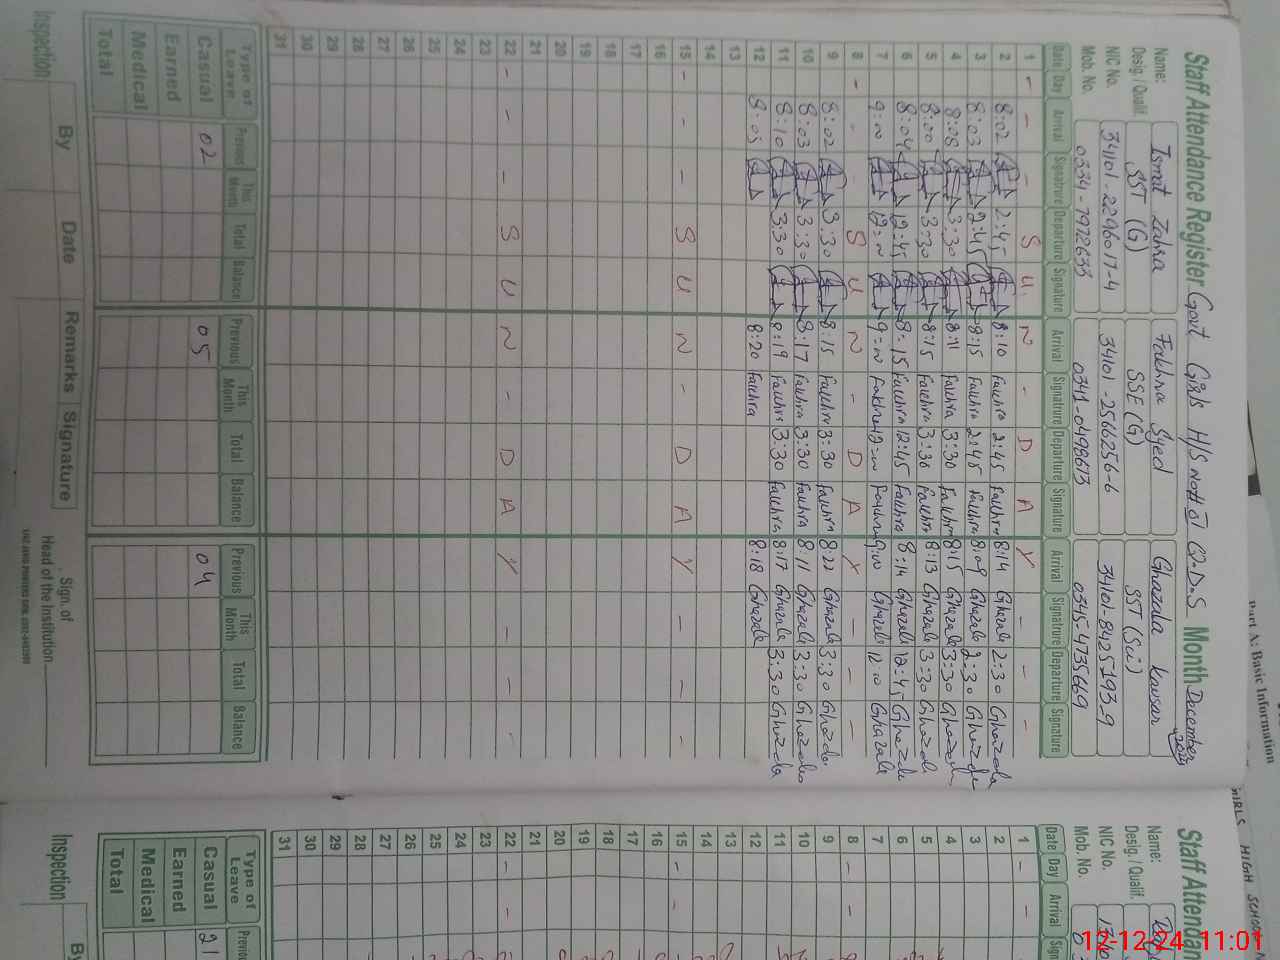 Staff Attendance Register Govt Girls H/S Month December
Name: Ismat Zahra Fakhra Syed Ghazala Kausar
Desig. / Qualif. SST (G) SSE (G) SST (Sci)
NIC No. 34101-2296017-4 34101-2566256-6 34101-8425193-9
Mob. No. 0334-7972633 0341-0498613 0345-4735669
Date Day Arrival Signatrure Departure Signature Arrival Signatrure Departure Signature Arrival Signatrure Departure Signature
1 - - - S U N - D A Y - - -
2 8:02 2:45 8:10 Fakhra 2:45 Fakhra 8:14 Ghazala 2:30 Ghazala
3 8:03 2:45 8:15 Fakhra 2:45 Fakhra 8:09 Ghazala 2:30 Ghazala
4 8:08 3:30 8:11 Fakhra 3:30 Fakhra 8:15 Ghazala 3:30 Ghazala
5 8:00 3:30 8:15 Fakhra 3:30 Fakhra 8:13 Ghazala 3:30 Ghazala
6 8:04 12:45 8:15 Fakhra 12:45 Fakhra 8:14 Ghazala 12:45 Ghazala
7 9:00 12:00 9:00 Fakhra 12:00 Fakhra 9:00 Ghazala 12:00 Ghazala
8 - - - S U N - D A Y - - -
9 8:02 3:30 8:15 Fakhra 3:30 Fakhra 8:22 Ghazala 3:30 Ghazala
10 8:03 3:30 8:17 Fakhra 3:30 Fakhra 8:11 Ghazala 3:30 Ghazala
11 8:10 3:30 8:19 Fakhra 3:30 Fakhra 8:17 Ghazala 3:30 Ghazala
12 8:05 8:20 Fakhra 8:18 Ghazala
13
14
15 - - - S U N - D A Y - - -
16
17
18
19
20
21
22 - - - S U N - D A Y - - -
23
24
25
26
27
28
29
30
31
Type of Leave Previous This Month Total Balance Previous This Month Total Balance Previous This Month Total Balance
Casual 02 05 04
Earned
Medical
Total
Inspection By Date Remarks Signature
Sign. of
Head of the Institution
Staff Attendan
Name:
Desig. / Qualif.
NIC No.
Mob. No.
Date Day Arrival
1 - -
2
3
4
5
6
7
8 - -
9
10
11
12
13
14
15 - -
16
17
18
19
20
21
22 - -
23
24
25
26
27
28
29
30
31
Type of Leave
Casual 21
Earned
Medical
Total
Inspection By
Part A: Basic Information
GIRLS HIGH SCHOOL
12-12-24 11:01